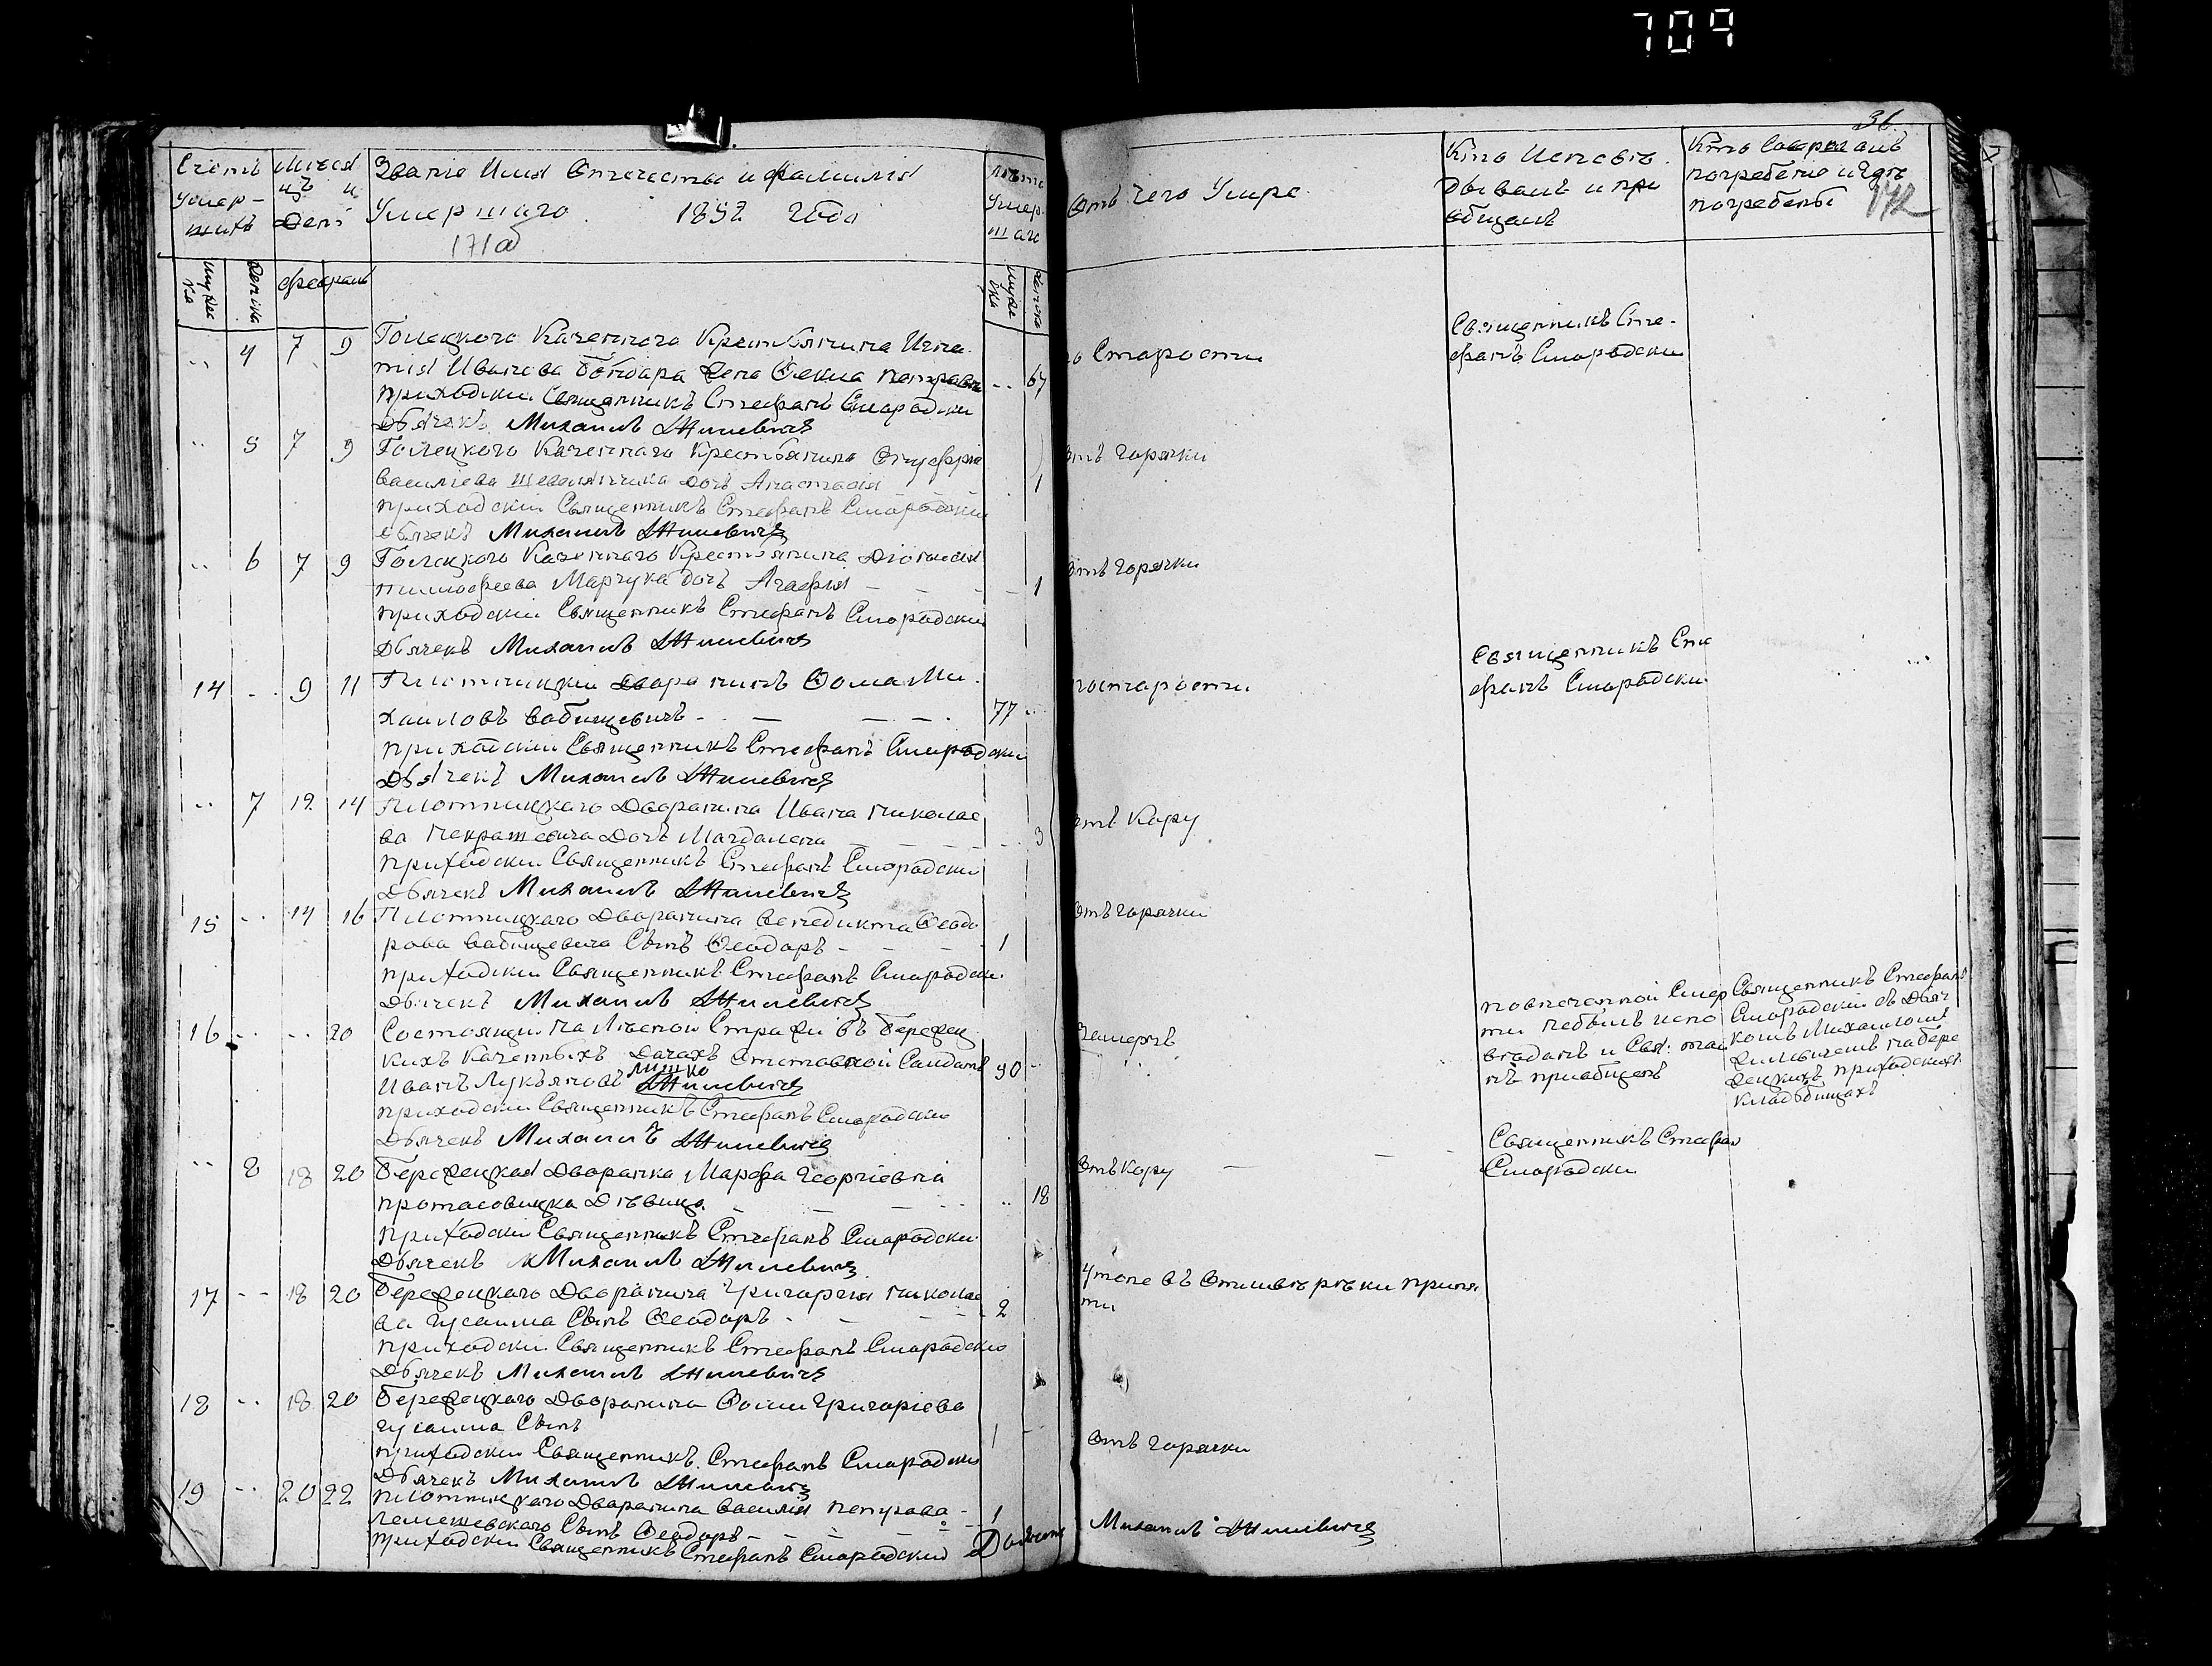 709
36
172
Счетъ умер-шихъ
Месяцъ и День
Званіе Имя Отчество и фамилія
Умершаго 1852 года
171об
лѣта Умершаго
Отъ чего Умре.
Кто Исповѣдывалъ и приобщалъ
Кто Совершалъ погребеніе и гдѣ погребены
мужеска
женска
февраль
мужеска
женска
.. 4 7 9 Голецкого Казенного Крестьянина Игна-
тія Иванова Бондара Жена Ѳекла Петрова .. 67
приходскій Священникъ Стефанъ Смородскій
Дьячекъ Михаилъ Жилевичъ
по Старости
Священникъ Сте-
фанъ Смородскій
.. 5 7 9 Голецкого Казенного Крестьянина Онуфрія
васильева дочь Анастасія 1
приходскій Священникъ Стефанъ Смородскій
Дьячекъ Михаилъ Жилевичъ
отъ горячки
.. 6 7 9 Голецкого Казенного Крестьянина Діонисія
тимофеева Марчука дочь Агафія - - - 1
приходскій Священникъ Стефанъ Смородскій
Дьячекъ Михаилъ Жилевичъ
отъ горячки
14 .. 9 11 Плотницкій Дворянинъ Ѳома Ми-
хаиловъ вабищевичъ - - - - 77 ..
приходскій Священникъ Стефанъ Смородскій
Дьячекъ Михаилъ Жилевичъ
по старости
Священникъ Сте
фанъ Смородскій
.. 7 12 14 Плотницкого Дворянина Ивана николае
ва Некрашевича Дочь Магдалена - - - .. 3
приходскій Священникъ Стефанъ Смородскій
Дьячекъ Михаилъ Жилевичъ
отъ Кору
15 .. 14 16 Плотницкого Дворянина Венедикта Ѳеодо
рова вабищевича Сынъ Ѳеодоръ - - - 1
приходскій Священникъ Стефанъ Смородскій
Дьячекъ Михаилъ Жилевичъ
отъ горячки
16 .. .. 20 Состоящій на Лѣсной Стражи въ Бережец
кихъ Казенныхъ Дачахъ отставной Салдатъ 90 ..
Иванъ Лукьяновъ Жилевичъ
приходскій Священникъ Стефанъ Смородскій
Дьячекъ Михаилъ Жилевичъ
Замерзъ
Священникъ Стефанъ
Смородскій съ Дьяч
комъ Михаиломъ
Жилевичемъ на бере
жецкихъ приходскихъ
кладбищахъ
.. 8 18 20 Бережецкая Дворянка Марфа Георгіевна
протасовицка Дѣвица. - - - .. 18
приходскій Священникъ Стефанъ Смородскій
Дьячекъ Михаилъ Жилевичъ
отъ Кору - -
Священникъ Стефан
Смородскій
17 - - 18 20 Бережецкого Дворянина Григорія николае
ва гусаима Сынъ Ѳеодоръ - - - 2
приходскій Священникъ Стефанъ Смородскій
Дьячекъ Михаилъ Жилевичъ
Утопе въ рѣки припя
ти
18 .. 18 20 Бережецкого Дворянина Ѳомы Григоріева
гусаима Сынъ 1 -
приходскій Священникъ Стефанъ Смородскій
Дьячекъ Михаилъ Жилевичъ
отъ горячки
19 .. 20 22 плотницкого Дворянина василія петрова - 1
лемешевского Сынъ Ѳеодоръ - - -
приходскій Священникъ Стефанъ Смородскій Дьячекъ
Михаилъ Жилевичъ